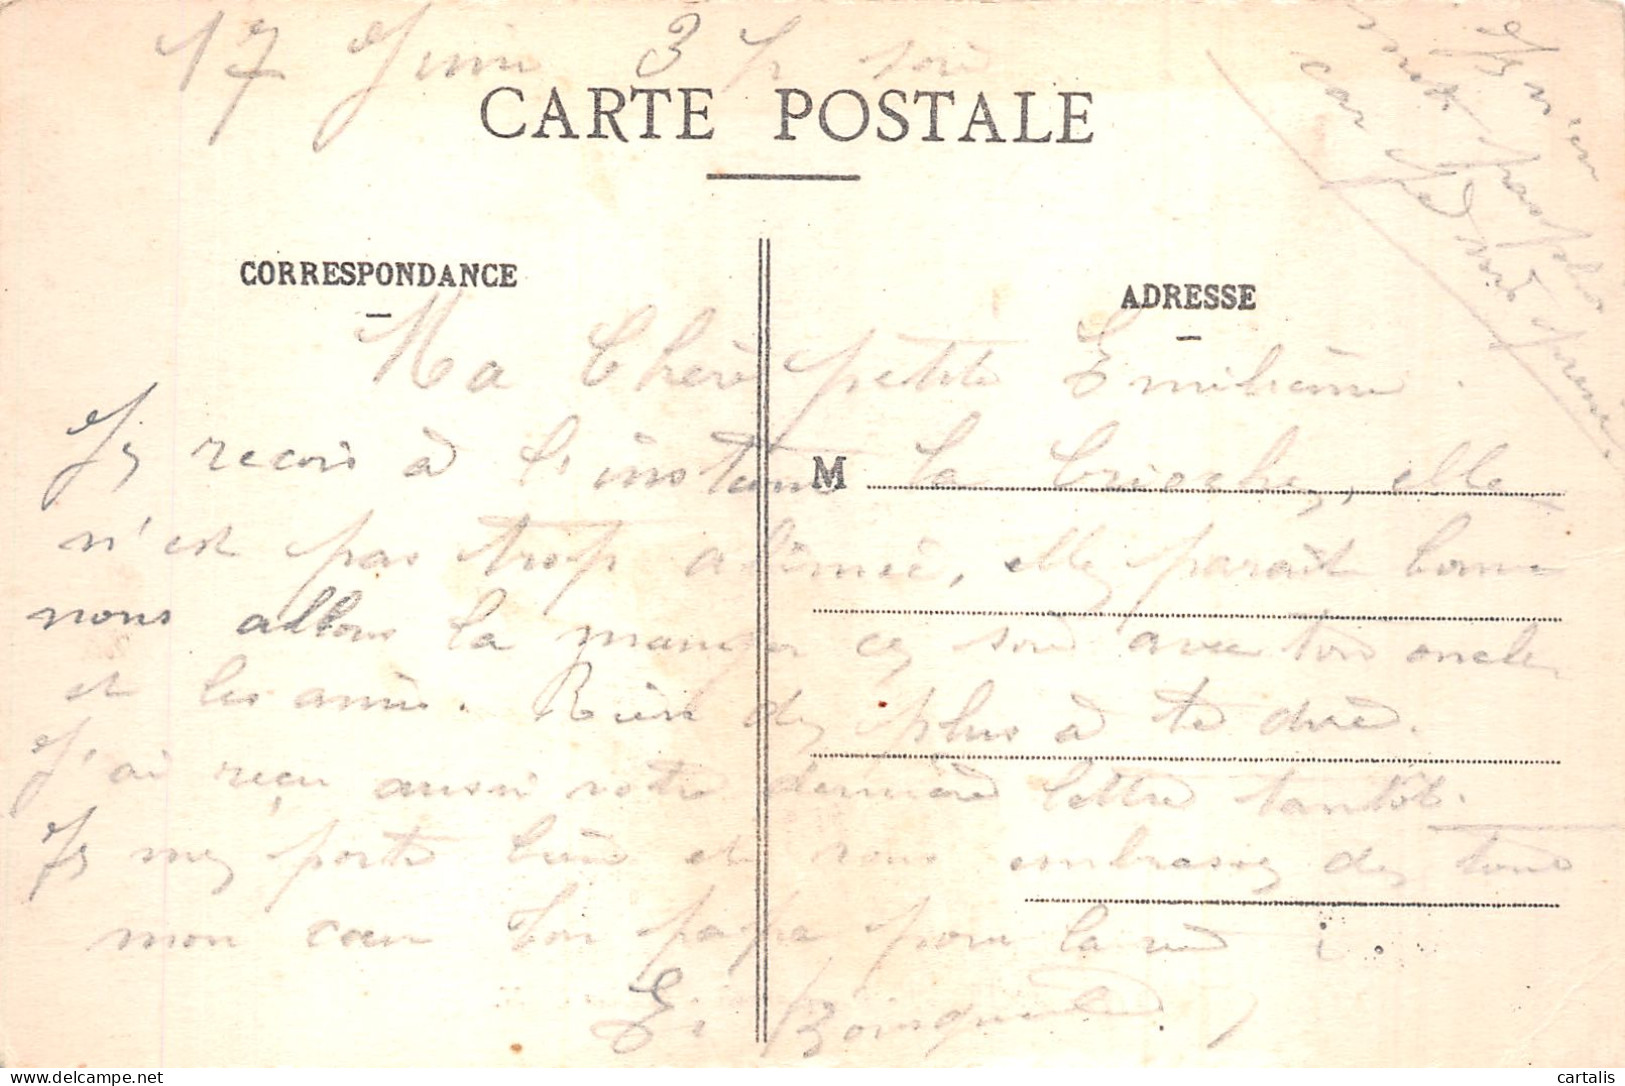 17 Juin 3 h soir
CARTE POSTALE
Je n'en
mets pas plus
car je dois
CORRESPONDANCE
ADRESSE
Ma Chère petite Emilienne.
Je reçois à l'instant la brioche, elle
M
n'est pas trop abîmée, elle parait bonne
nous allons la manger ce soir avec ton oncle
et les amis. Rien de plus à te dire.
J'ai reçu aussi votre dernière lettre tantôt.
Je me porte bien et vous embrasse de tout
mon cœur ton papa pour la vie
cartalis